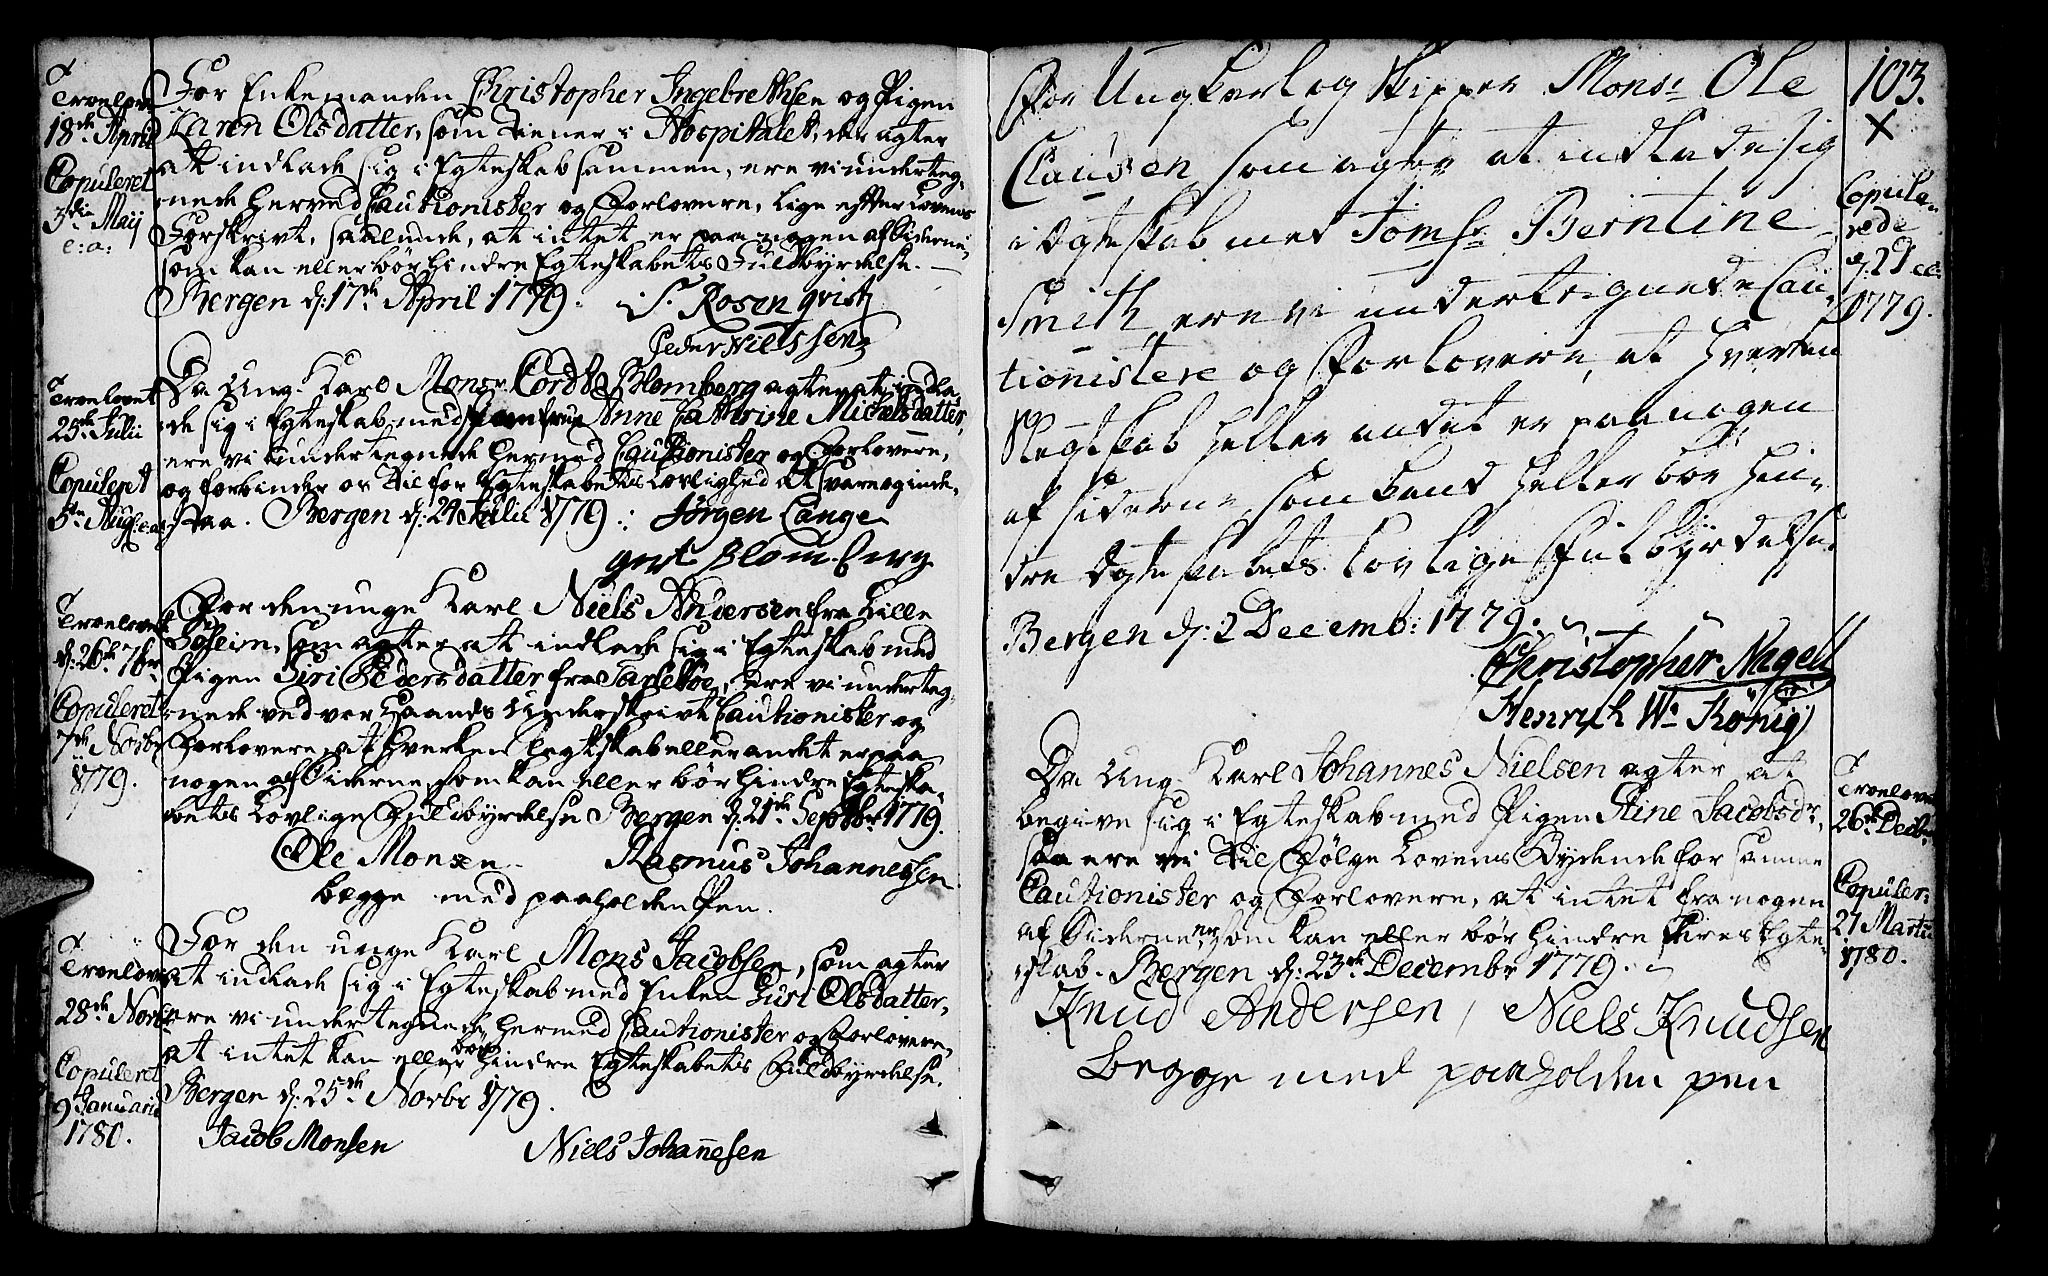 Troelovet
18de April
Copuleret
3die Maij
e: a:
For Enkemanden Christopher Ingebrethsen og Pigen
Karen Olsdatter, som tiener i Hospitalet, der agter
at indlade sig i Egteskab sammen, ere vi underteg-
nede herved Cautionister og Forlovere, lige efter Lovens
Forskrivt, saaledes, at intet er paa nogen af Siderne,
som kan eller bør hindre Egteskabets Fuldbyrdelse.
Bergen d: 17de April 1779. S. Rosenqvist
Peder Nielssen
Troelovet
25de Julii
Copuleret
5te Aug: e: a:
Da Ung-Karl Monsr. Cordt Blomberg agter at indla-
de sig i Egteskab med Jomfrue Anne Cathrine Michelsdatter,
ere vi undertegnede hermed Cautionister og Forlovere,
og forbinder os til for Egteskabets Lovlighed at svare og inde-
staa. Bergen d: 24 Julii 1779. Jørgen Lange
gert Blomberg
Troelovet
d: 26de 7br
Copuleret
7de Novbr
1779.
For den unge Karl Niels Andersen fra Lille
Soleim, som agter at indlade sig i Egteskab med
Pigen Siri Pedersdatter fra, ere vi underteg-
nede ved vor Haands Underskrivt Cautionister og
Forlovere, at hverken Slegtskab eller andet er paa
nogen af Siderne, som kan eller bør hindre Egteska-
betes Lovlige Fuldbyrdelse Bergen d: 21de Septbr 1779.
Ole Monsen Rasmus Johannessen
begge med paaholden Pen.
Troelovet
28de Novbr
Copuleret
9 Januarii
1780.
For den unge Karl Mons Jacobsen, som agter
at indlade sig i Egteskab med Enken Guri Olsdatter,
ere vi undertegnede hermed Cautionister og Forlovere,
at intet kan eller bør hindre Egteskabets Fuldbyrdelse.
Bergen d: 25de Novbr 1779.
Jacob Monsen Niels Johannesen
103.
X
For Ungkarl og Skipper Monsr. Ole
Clausen som agter at indlade sig
i Egteskab med Jomfr. Berntine
Smith, ere vi undertegnede Cau-
tionistere og Forlovere, at hverken
Slegtskab heller andet er paa nogen
af siderne, som kand heller bør hin-
dre Egteskabets lovlige Fulbyrdelse.
Bergen d: 2 Decemb: 1779.
Christopher Nagell
Henrich Wm König
Copule-
rede
1779.
Da Ung-Karl Johannes Nielsen agter at
begive sig i Egteskab med Pigen Stine Jacobsdr,
saa ere vi til Følge Lovens Bydende for samme
Cautionister og Forlovere, at intet fra nogen
af Siderne er, som kan eller bør hindre Egte-
skab. Bergen d: 23de Decembr 1779.
Knud Andersen / Niels Knudsen
begge med paaholden pen
Troelovet
26de Decbr
Copuler:
27 Martii
1780.